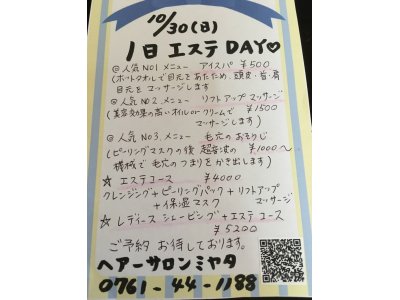 10/30(日)
1日エステDAY♡
@人気NO1.メニュー アイスパ ¥500
(ホットタオルで目元をあたため、頭皮・首・肩
目元をマッサージします
@人気NO2.メニュー リフトアップマッサージ
(美容効果の高いオイルorクリームで ¥1500
マッサージします)
@人気NO3.メニュー 毛穴のおそうじ
(ピーリングマスクの後 超音波の ¥1000〜
機械で毛穴のつまりをかき出します)
☆ エステコース ¥4000
クレンジング+ピーリングパック+リフトアップ
+保湿マスク マッサージ
☆ レディースシェービング+エステコース
¥5200
ご予約お待しております。
ヘアーサロンミヤタ
0761-44-1188